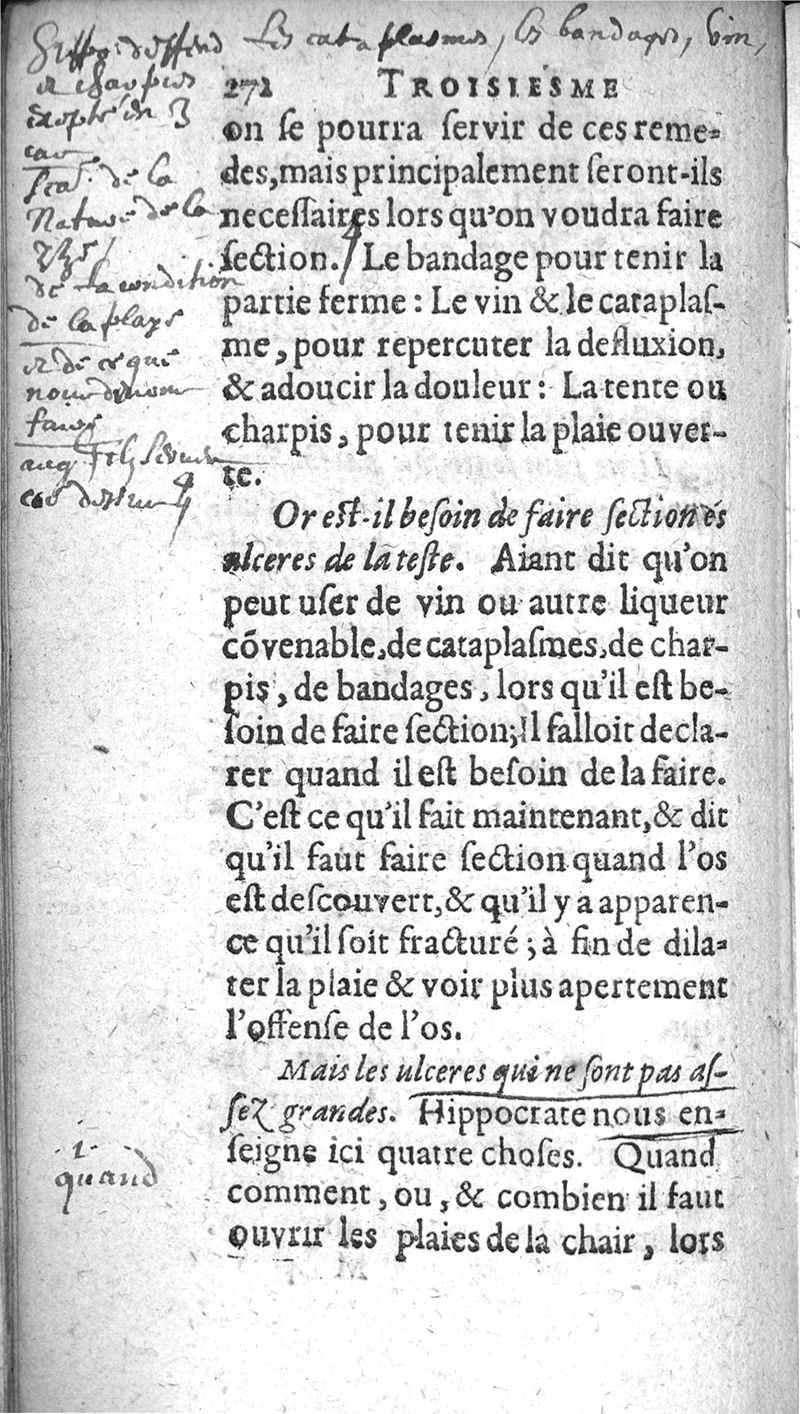 Hippo. deffend Les cataplasmes, les bandages, vin,
et charpies
excepté en 3
cas
sca. de la
Nature de la
de la condition
de la playe
et de ce que
nous devons
faire
272 TROISIESME
on se pourra servir de ces reme-
des, mais principalement seront-ils
necessaires lors qu'on voudra faire
section. Le bandage pour tenir la
partie ferme : Le vin & le cataplas-
me, pour repercuter la defluxion,
& adoucir la douleur : La tente ou
charpis, pour tenir la plaie ouver-
te.
Or est-il besoin de faire section és
ulceres de la teste. Aiant dit qu'on
peut user de vin ou autre liqueur
cõvenable, de cataplasmes, de char-
pis, de bandages, lors qu'il est be-
soin de faire section; Il falloit decla-
rer quand il est besoin de la faire.
C'est ce qu'il fait maintenant, & dit
qu'il faut faire section quand l'os
est descouvert, & qu'il y a apparen-
ce qu'il soit fracturé ; à fin de dila-
ter la plaie & voir plus apertement
l'offense de l'os.
Mais les ulceres qui ne sont pas as-
sez grandes. Hippocrate nous en-
seigne ici quatre choses. Quand
comment, ou, & combien il faut
ouvrir les plaies de la chair, lors
1.
quand